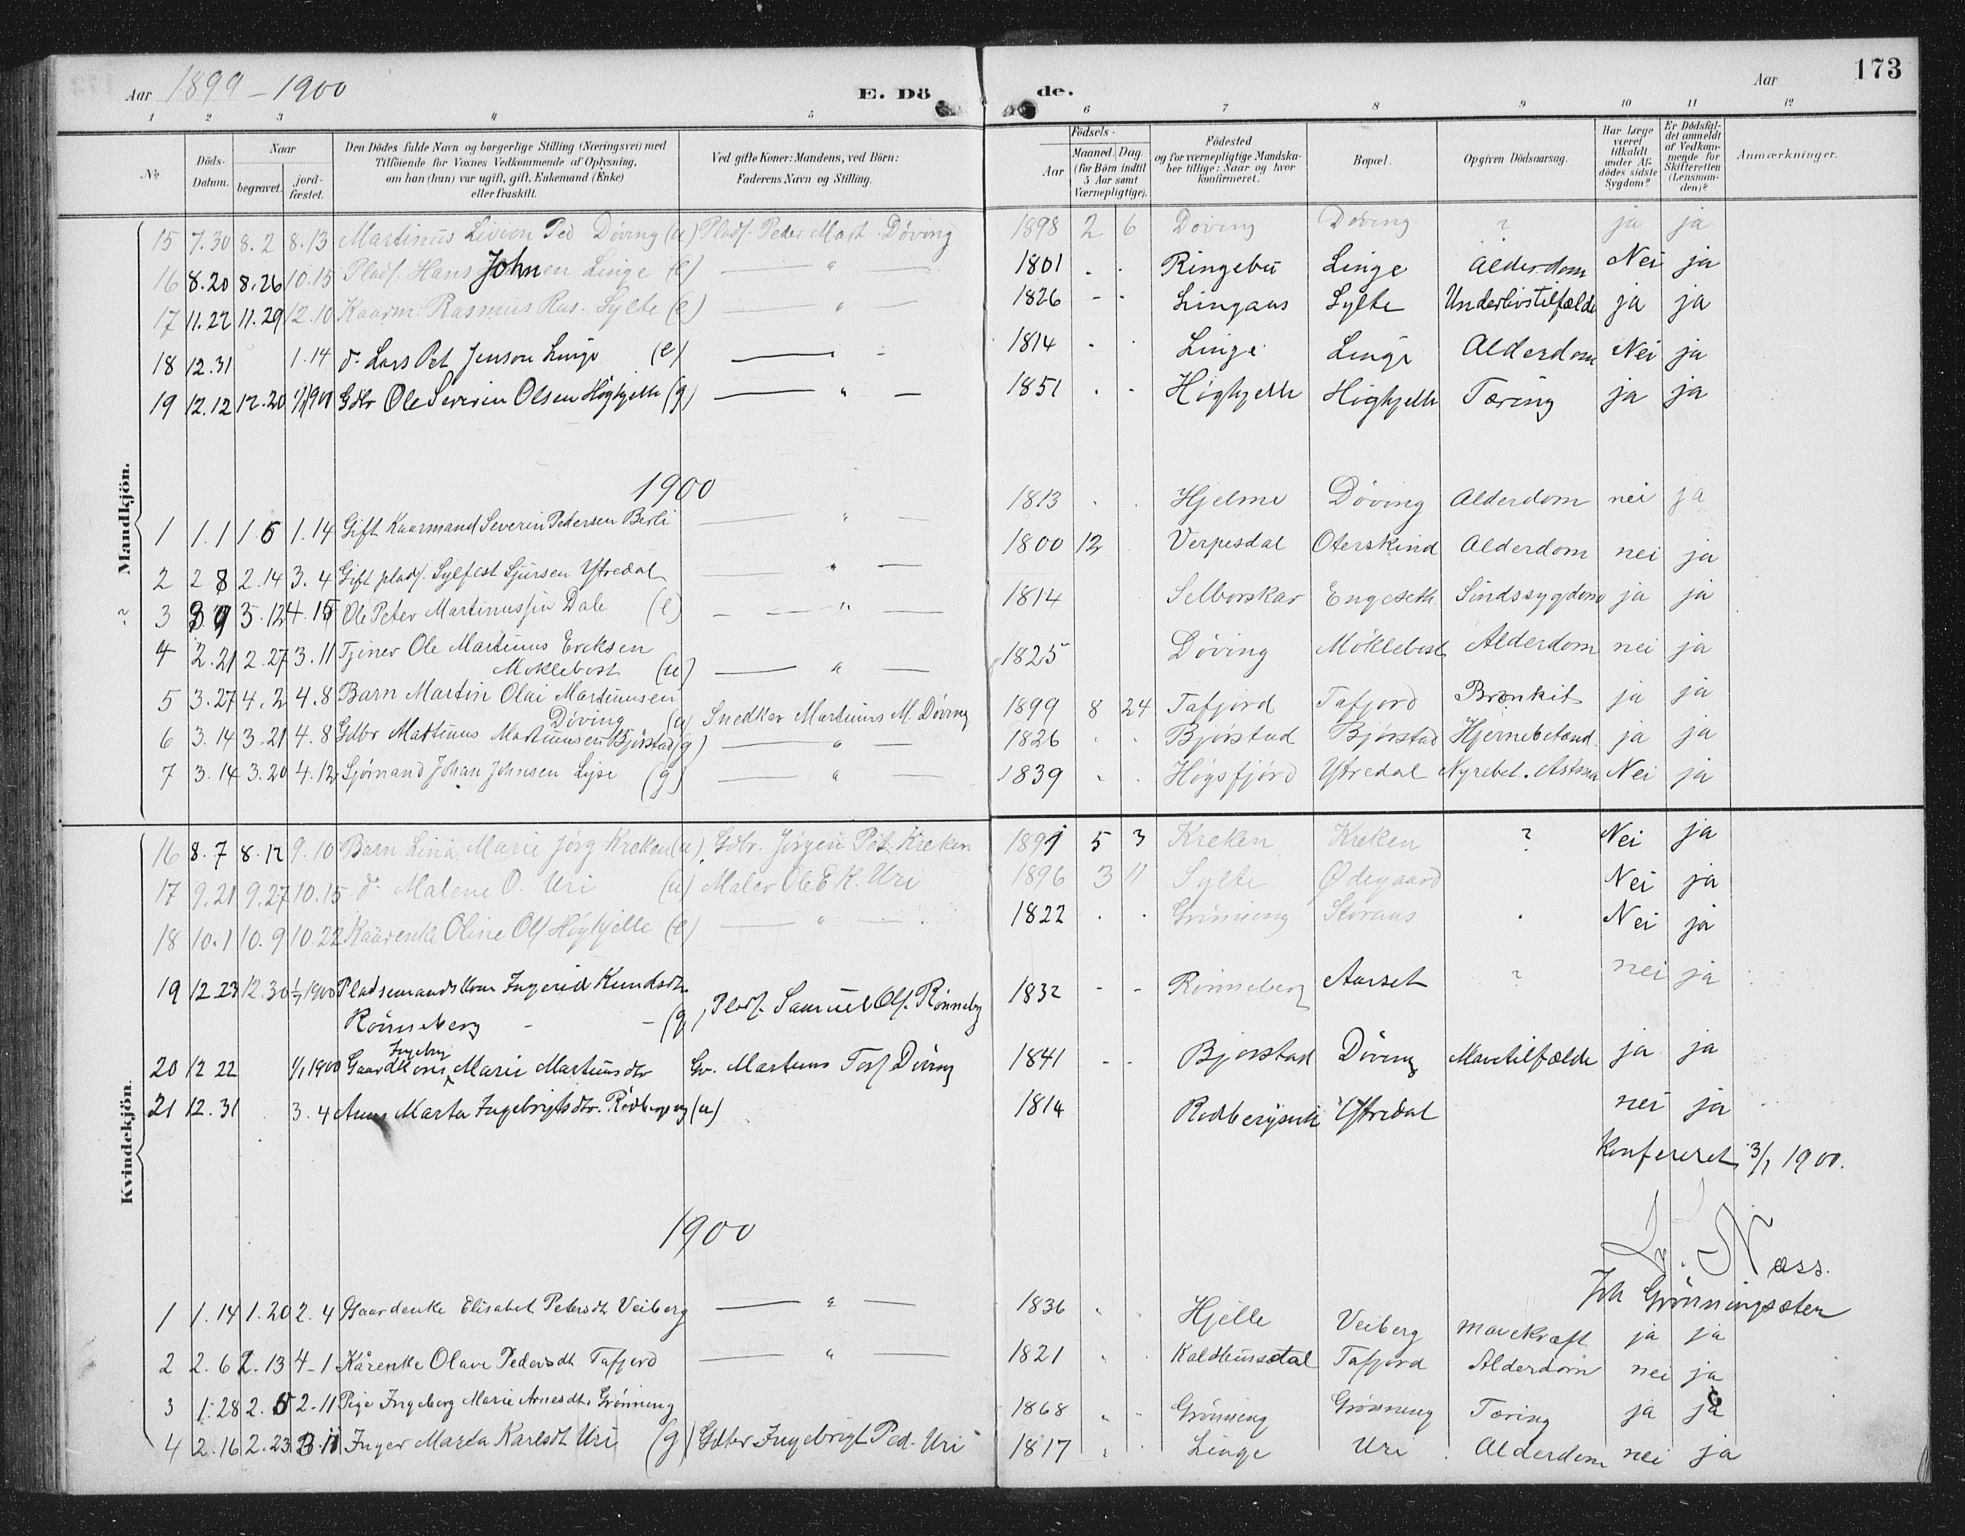 Aar 1899 - 1900 E. Dö de. Aar 173
1 2 3 4 5 6 7 8 9 10 11 12
No Döds-Datum. Naar begravet. jordfæstet. Den Dödes fulde Navn og borgerlige Stilling (Næringsvei) med Tilföiende for Voxnes Vedkommende af Oplysning, om han (hun) var ugift, gift, Enkemand (Enke) eller fraskilt. Ved gifte Koner: Mandens, ved Börn: Faderens Navn og Stilling. Födsels- Aar Maaned. Dag (for Börn indtil 5 Aar samt Værnepligtige). Födested og for værnepligtige Mandskaber tillige: Naar og hvor konfirmeret. Bopæl. Opgiven Dödsaarsag. Har Læge været tilkaldt under Afdödes sidste Sygdom? Er Dödsfaldet anmeldt af Vedkommende for Skifteretten (Lensmanden)? Anmærkninger.
Mandkjön.
15 7.30 8.2 8.13 Martinus Ped Döving (u) Plads. Peder Mart. Döving 1898 2 6 Döving Döving ? ja ja
16 8.20 8.26 10.15 Plads. Hans Johnsen Linge (e) — " — 1801 . . Ringebu Linge Alderdom Nei ja
17 11.22 11.29 12.10 Kaarm. Rasmus Ras. Sylte (e) — " — 1826 - - Lingaas Sylte Underlivstilfælde ja ja
18 12.31 1.14 do Lars Pet Jenson Linge (e) — " — 1814 . . Linge Linge Alderdom Nei ja
19 12.12 12.20 1/1 1900 Gdbr Ole Severin Olsen Höghjelle (g) — " — 1851 . . Höghjelle Höghjelle Tæring ja ja
1900
1 1.1 1.6 1.14 Gift Kaarmand Severin Pedersen Berli — " — 1813 . . Hjelme Döving Alderdom nei ja
2 2 8 2.14 3.4 Gift plads. Sylfest Sjursen Yttredal — " — 1800 12 Verpesdal Oterskind Alderdom nei ja
3 3.9 3.12 4.15 Ole Peter Martinussön Dale (e) — " — 1814 Selborskar Engeseth Sindssygdom ja ja
4 2.21 2.27 3.11 Tjener Ole Martinus Ericksen Möklebost (u) — " — 1825 Döving Möklebost Alderdom nei ja
5 3.27 4.2 4.8 Barn Martin Olai Martinusen Döving (u) Snedker Martinus M. Döving 1899 8 24 Tafjord Tafjord Bronkit ja ja
6 3.14 3.21 4.8 Gdbr Martinus Martinusen Björstad (g) — " — 1826 . . Björstad Björstad Hjernebetænd. ja ja
7 3.14 3.20 4.12 Sjömand Johan Johnsen Lyse (g) — " 1839 . . Högsfjörd Yttredal Nyrebet. Astma Nei ja
Kvindekjön.
16 8.7 8.12 9.10 Barn Lina Marie Jörg Kreken (u) Gdbr. Jörgen Pet. Kreken 1891 5 3 Kreken Kreken ? Nei ja
17 9.21 9.27 10.15 do Malene O. Uri (u) Maler Ole E K. Uri 1896 3 11 Sylte Ødegaard Nei ja
18 10.1 10.9 10.22 Kaarenke Oline Ols Höghjelle (e) — " — 1822 . . Grönning Storaas . Nei ja
19 12.23 12.30 1/1 1900 Pladsemandskone Ingerid Knudsdtr Rönneberg - - (g) Plads. Samuel Ols. Rönneberg 1832 - - Rönneberg Aarset ? nei ja
20 12 22 1/1 1900 Gaardkone Ingeborg Marie Martinusdtr Gr. Martinus Tors Döving 1841 - - Bjorstad Döving Mavetilfælde ja ja
21 12.31 3.4 Anne Marta Ingebrigtsdtr. Rödbergvig (u) 1814 Rodbergvik Yttredal nei ja
Konfereret 3/1 1900.
Næss.
Joh Grönningsæter
1900
1 1.14 1.20 2.4 Gaardenke Elisabet Petersdt Veiberg — " — 1836 . . Hjelle Veiberg Mavekræft ja ja
2 2.6 2.13 4-1 Kårenke Olave Pedersdt Tafjord — " — 1821 . . Kaldhussætal Tafjord Alderdom nei ja
3 1.28 2.5 2-11 Pige Ingeborg Marie Arnesdt. Grönning 1868 . . Grönning Grönning Tæring ja ja
4 2.16 2.23 3.11 Inger Marta Karlsdt Uri (g) Gdbr Ingebrigt Ped. Uri 1817 . . Linge Uri Alderdom nei ja